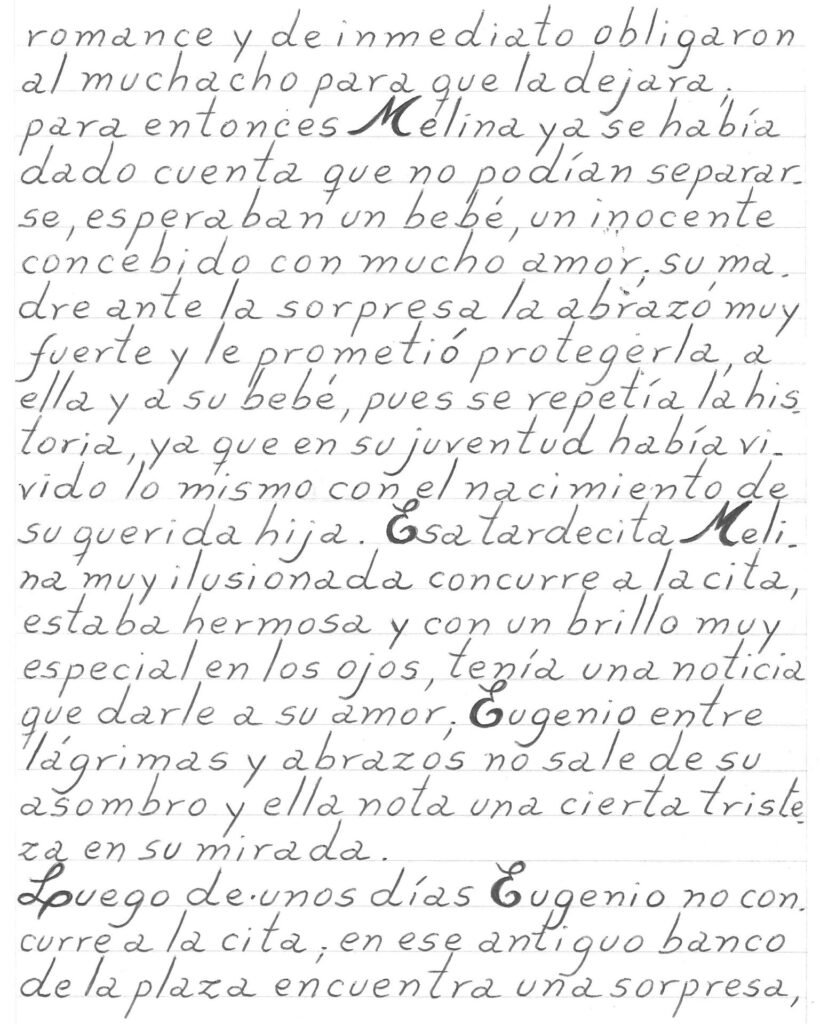 romance y de inmediato obligaron
al muchacho para que la dejara;
para entonces Melina ya se había
dado cuenta que no podían separar-
se, esperaban un bebé, un inocente
concebido con mucho amor; su ma-
dre ante la sorpresa la abrazó muy
fuerte y le prometió protegerla, a
ella y a su bebé, pues se repetía la his-
toria, ya que en su juventud había vi-
vido lo mismo con el nacimiento de
su querida hija. Esa tardecita Meli-
na muy ilusionada concurre a la cita,
estaba hermosa y con un brillo muy
especial en los ojos, tenía una noticia
que darle a su amor; Eugenio entre
lágrimas y abrazos no sale de su
asombro y ella nota una cierta triste-
za en su mirada.
Luego de unos días Eugenio no con-
curre a la cita; en ese antiguo banco
de la plaza encuentra una sorpresa,